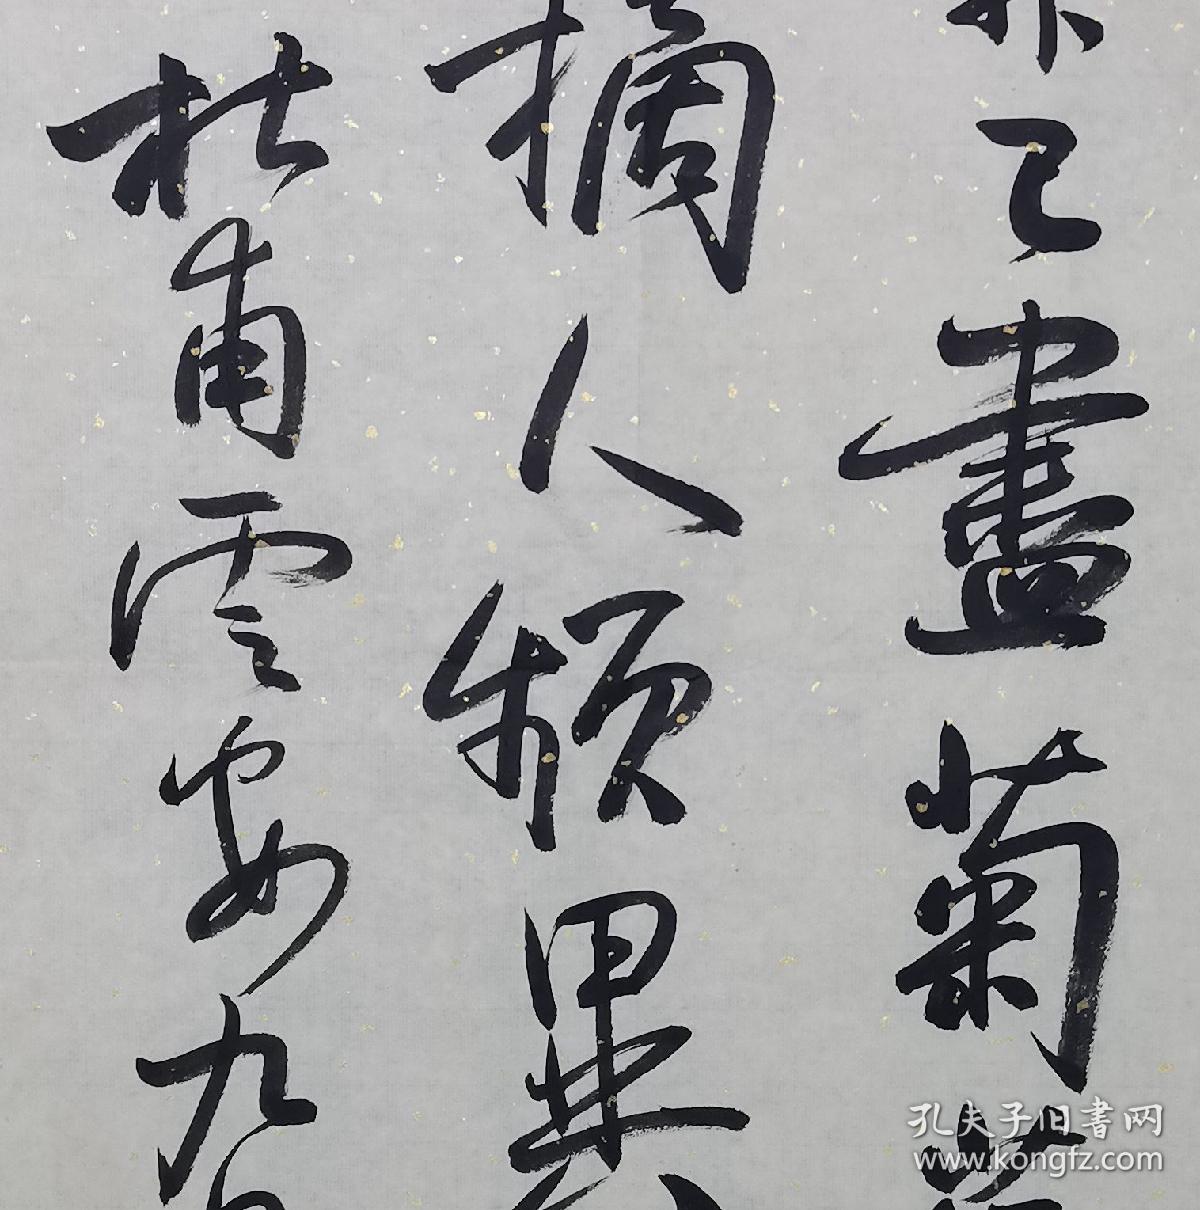 已盡菊
摘人頻異
杜甫雲安九
孔夫子旧書网
www.kongfz.com